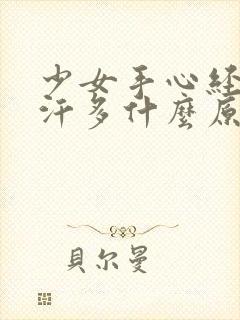 少女手心經
汗多什麼原
貝尔曼